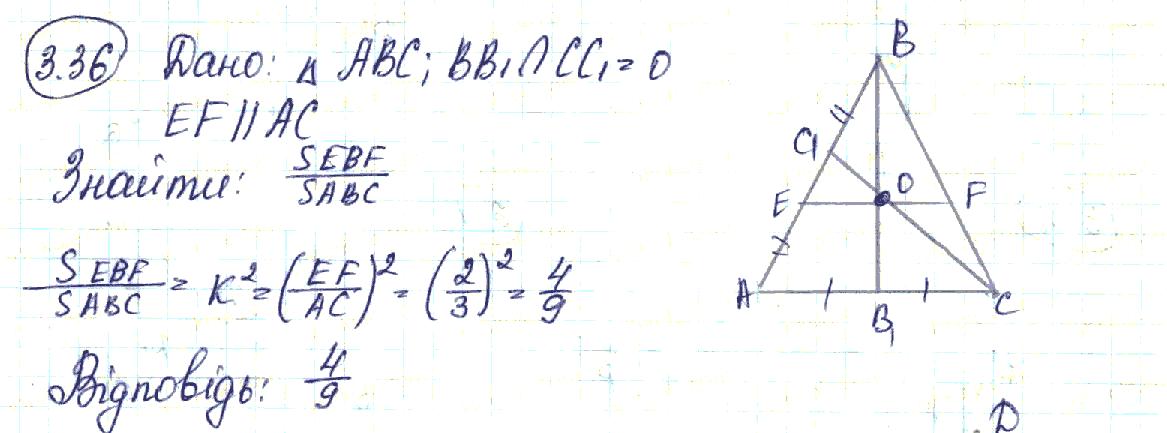 3.36 Дано: △ ABC; BB₁∩CC₁=O
EF||AC
Знайти: SEBF/SABC
SEBF/SABC = K² = (EF/AC)² = (2/3)² = 4/9
Відповідь: 4/9
B
C₁
E O F
A B₁ C
D